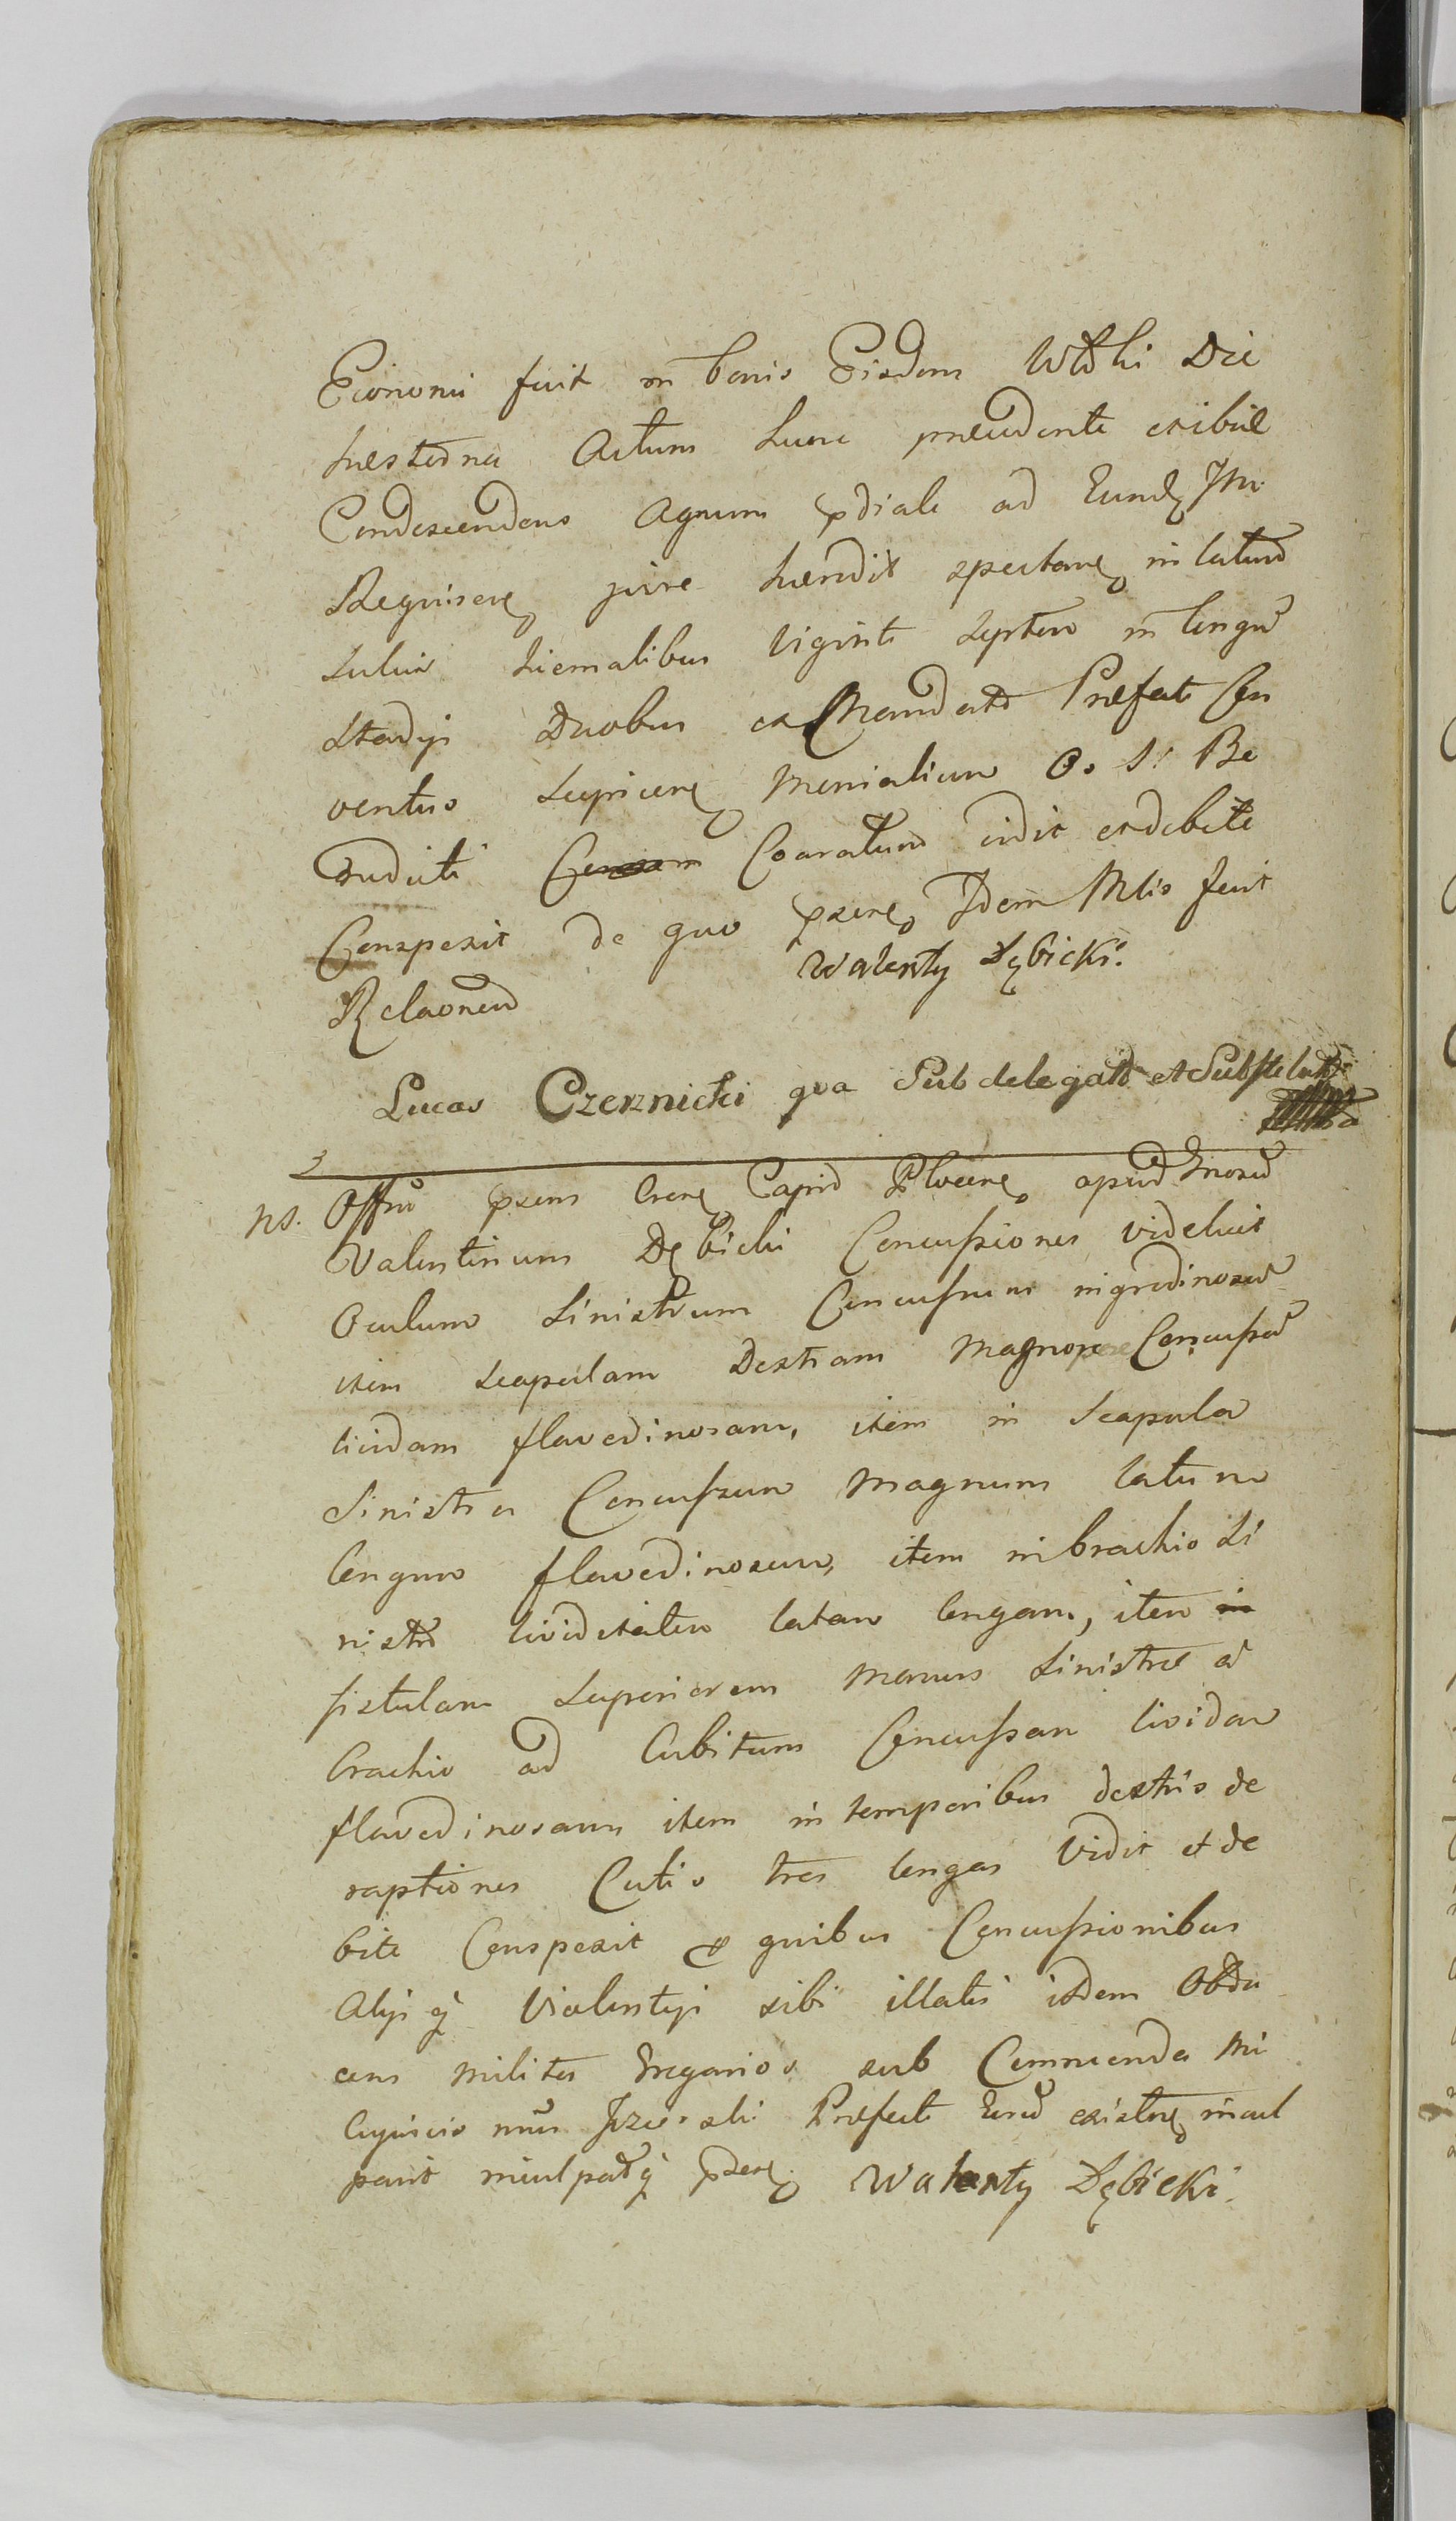 Economi fuit in bonis Eisdem Wtski Die
hesterna Actum hunc precedente exibie
Condescendens Agrum pdiale ad Eund Im
Requirere jure heredit spectane in latum
sulcis hiemalibus viginti septem in longu
stadijs Duobus ex Mandato Prefate Con
ventus Monialium O. S. Be
nedicti Coaratum vidit et debite
Conspexit de quo psene Idem Mtis fecit
Walenty Dębicki.
Relaonem
Lucas Czerznicki qua Subdelegato et Substituto
3
ns. Offm psens Crene Capid Plocene apud Gnosum
Valentinum Dębicki Concussiones videlicet
Oculum Sinistrum Concussum nigredinosum
item scapulam Dextram magnopere Concussa
lividam flavedinosam, item in Scapula
Sinistra Concussum magnum latum
longum flavedinosum, item in brachio Si
nistro lividitatem latam longam, item in
fistulam superiorem manus Sinistre a
brachio ad Cubitum Concussam lividam
flavedinosam item in temporibus dextris de
raptiones Cutis tres longas Vidit et de
bite Conspexit p quibus Concussionibus
Alijsq Violentijs sibi illatis idem Obdu
cens milites Gregarios sub Commenda
Prefecti existne incul
pavit inculpatq psene Walenty Dębicki.